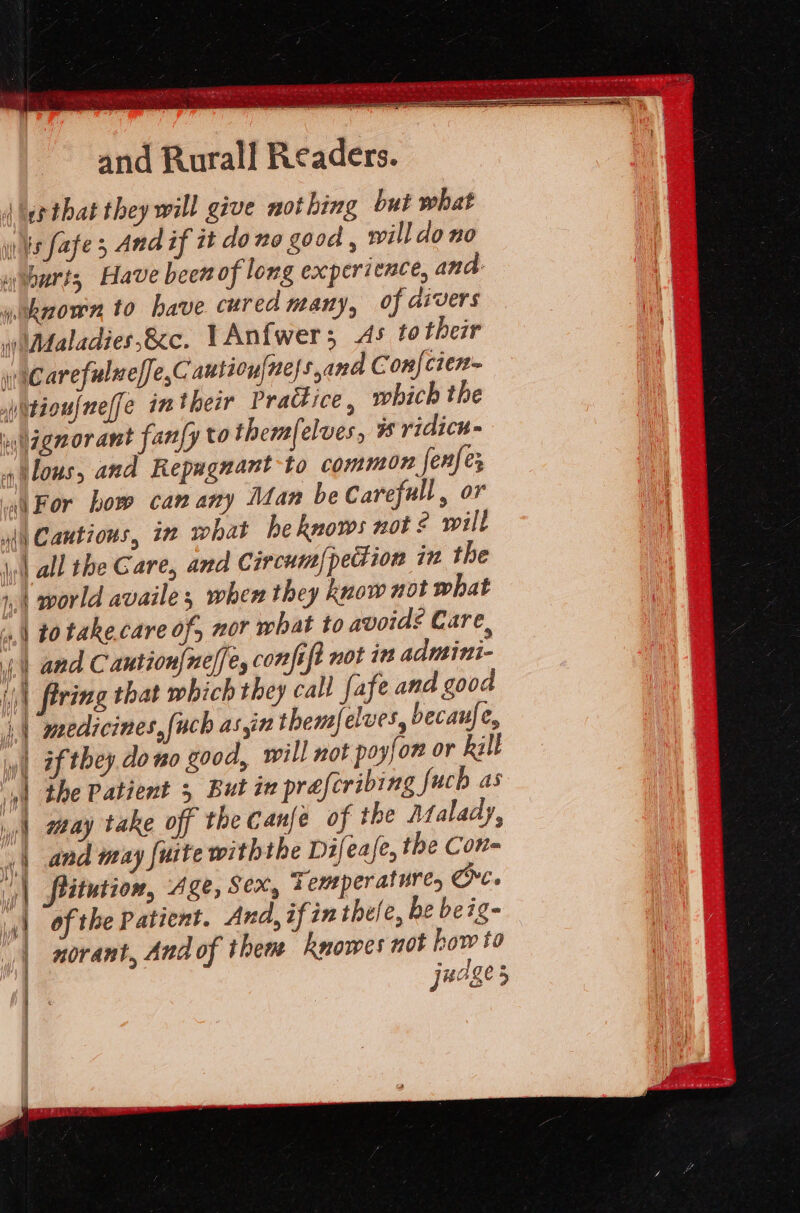 and Rurall Readers.
that they will give nothing but what
is ſafe; And if it do no good, will do no
hurt; Have been of long experience, and
known to have cured many, of divers
Maladies,&c. I Anſwer; As to their
Carefulneſſe,Cautiouſneſs,and Conſcien-
tiouſneſſe in their Practice, which the
ignorant fanſy to themſelves, is ridicu-
lous, and Repugnant to common ſenſe;
For how can any Man be Carefull, or
Cautious, in what he knows not? will
all the Care, and Circumſpection in the
world availe; when they know not what
to take care of, nor what to avoid? Care,
and Cautionſneſſe, conſiſt not in admini-
ſtring that which they call ſafe and good
medicines,ſuch as,in themſelves, becauſe,
if they do no good, will not poyſon or kill
the Patient ; But in præſcribing ſuch as
may take off the Cauſe of the Malady,
and may ſuite with the Diſeaſe, the Con-
ſtitution, Age, Sex, Temperature, &c.
of the Patient. And, if in theſe, he be ig-
norant, And of them knowes not how to
judge;